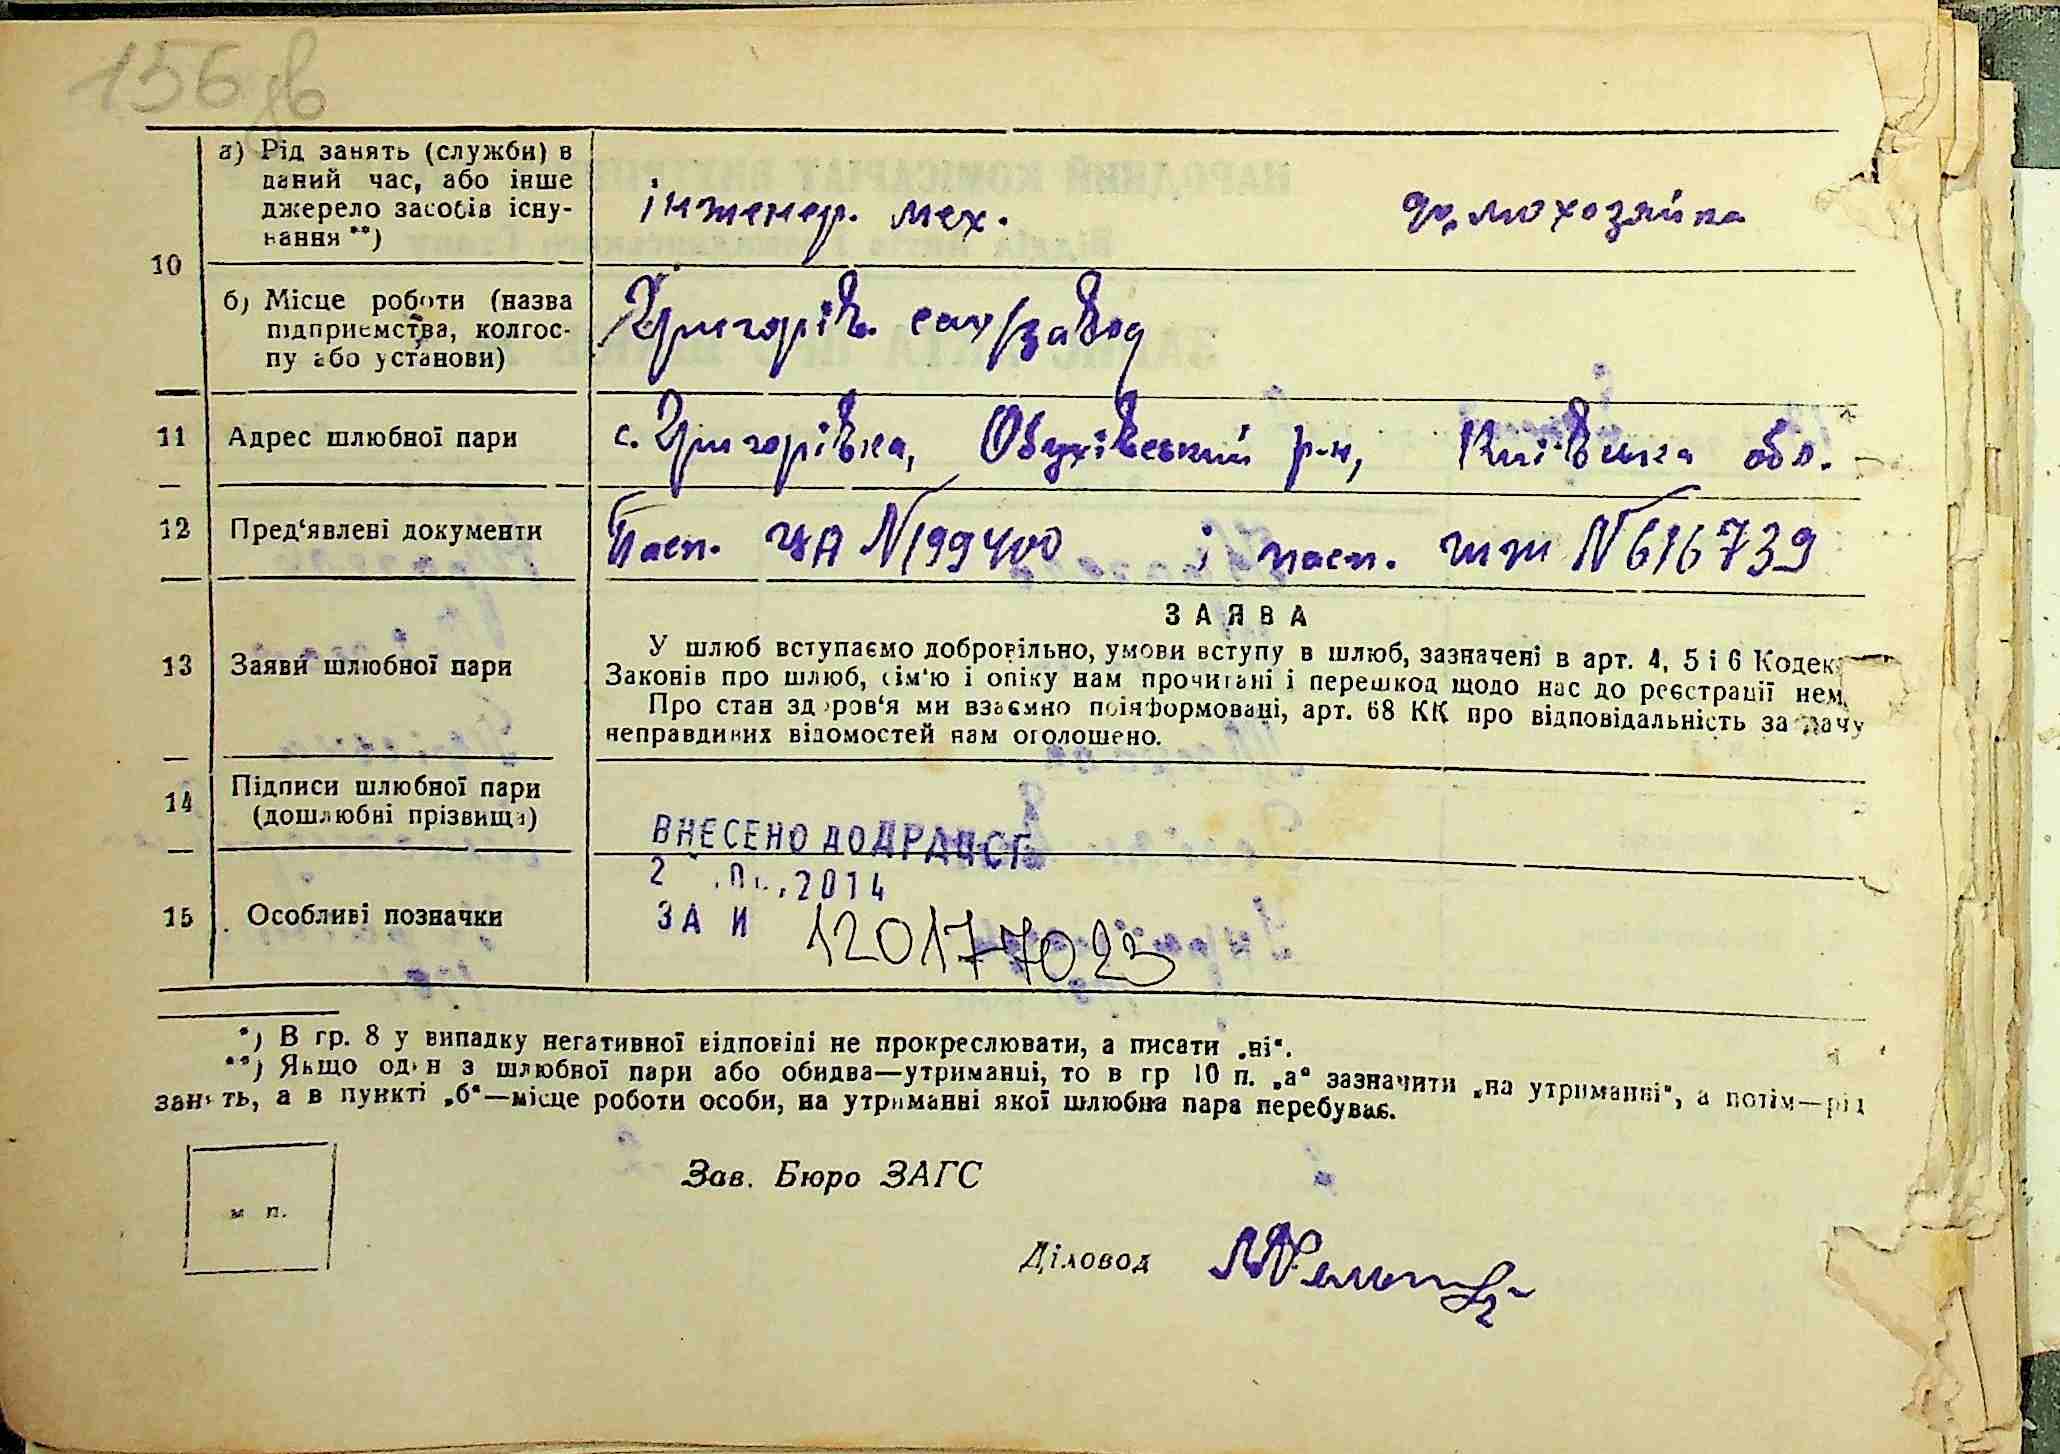 156 зв
а) Рід занять (служби) в
даний час, або інше
джерело засобів існу-
вання **)
інженер. мех.
домохозяйка
10
б) Місце роботи (назва
підприємства, колгос-
пу або установи)
Григорів. сах/завод
11
Адрес шлюбної пари
с. Григорівка, Обухівський р-н, Київська обл.
12
Пред'явлені документи
Пасп. ЧА №199400 і пасп. №616739
ЗАЯВА
13
Заяви шлюбної пари
У шлюб вступаємо добровільно, умови вступу в шлюб, зазначені в арт. 4, 5 і 6 Кодек
Законів про шлюб, сім'ю і опіку нам прочитані і перешкод щодо нас до реєстрації нем
Про стан здоров'я ми взаємно поінформовані, арт. 68 КК про відповідальність за дачу
неправдивих відомостей нам оголошено.
14
Підписи шлюбної пари
(дошлюбні прізвища)
ВНЕСЕНО ДО ДРАЦСГ
2 2014
15
Особливі позначки
ЗА И 120177023
*) В гр. 8 у випадку негативної відповіді не прокреслювати, а писати „ні“.
**) Якщо один з шлюбної пари або обидва—утриманці, то в гр 10 п. „а“ зазначити „на утриманні“, а потім—рід
занять, а в пункті „б“—місце роботи особи, на утриманні якої шлюбна пара перебуває.
м п.
Зав. Бюро ЗАГС
Діловод